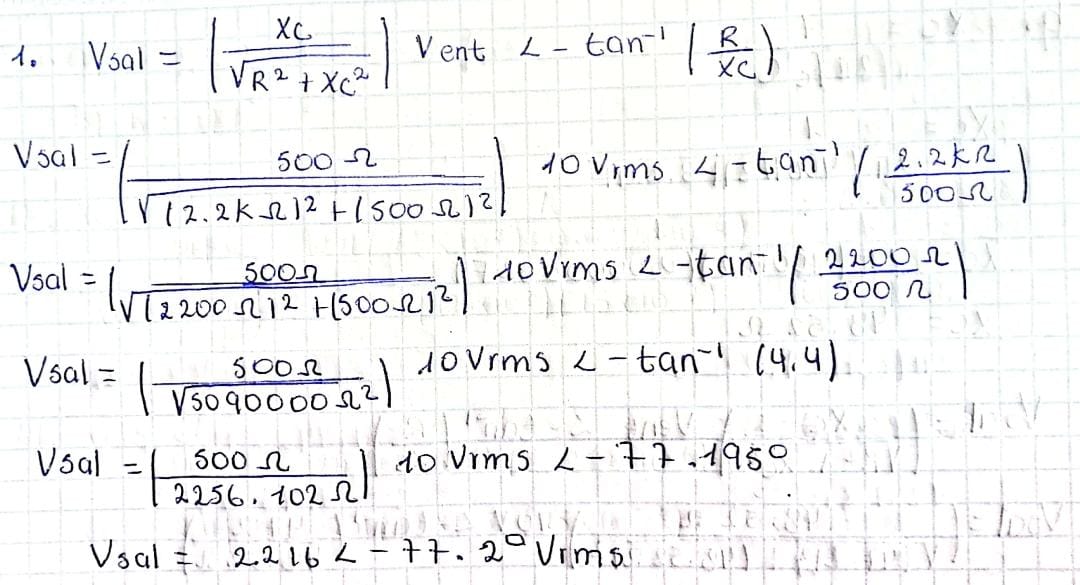 1. Vsal = (XC / √R² + XC²) Vent ∠ - tan⁻¹ (R / XC)
Vsal = (500 Ω / √(2.2K Ω)² + (500 Ω)²) 10 Vrms ∠ - tan⁻¹ (2.2KΩ / 500Ω)
Vsal = (500Ω / √(2200 Ω)² + (500Ω)²) 10Vrms ∠ - tan⁻¹ (2200 Ω / 500 Ω)
Vsal = (500Ω / √5090000 Ω²) 10Vrms ∠ - tan⁻¹ (4.4)
Vsal = (500 Ω / 2256.102 Ω) 10 Vrms ∠ - 77.195°
Vsal = 2.216 ∠ - 77.2° Vrms